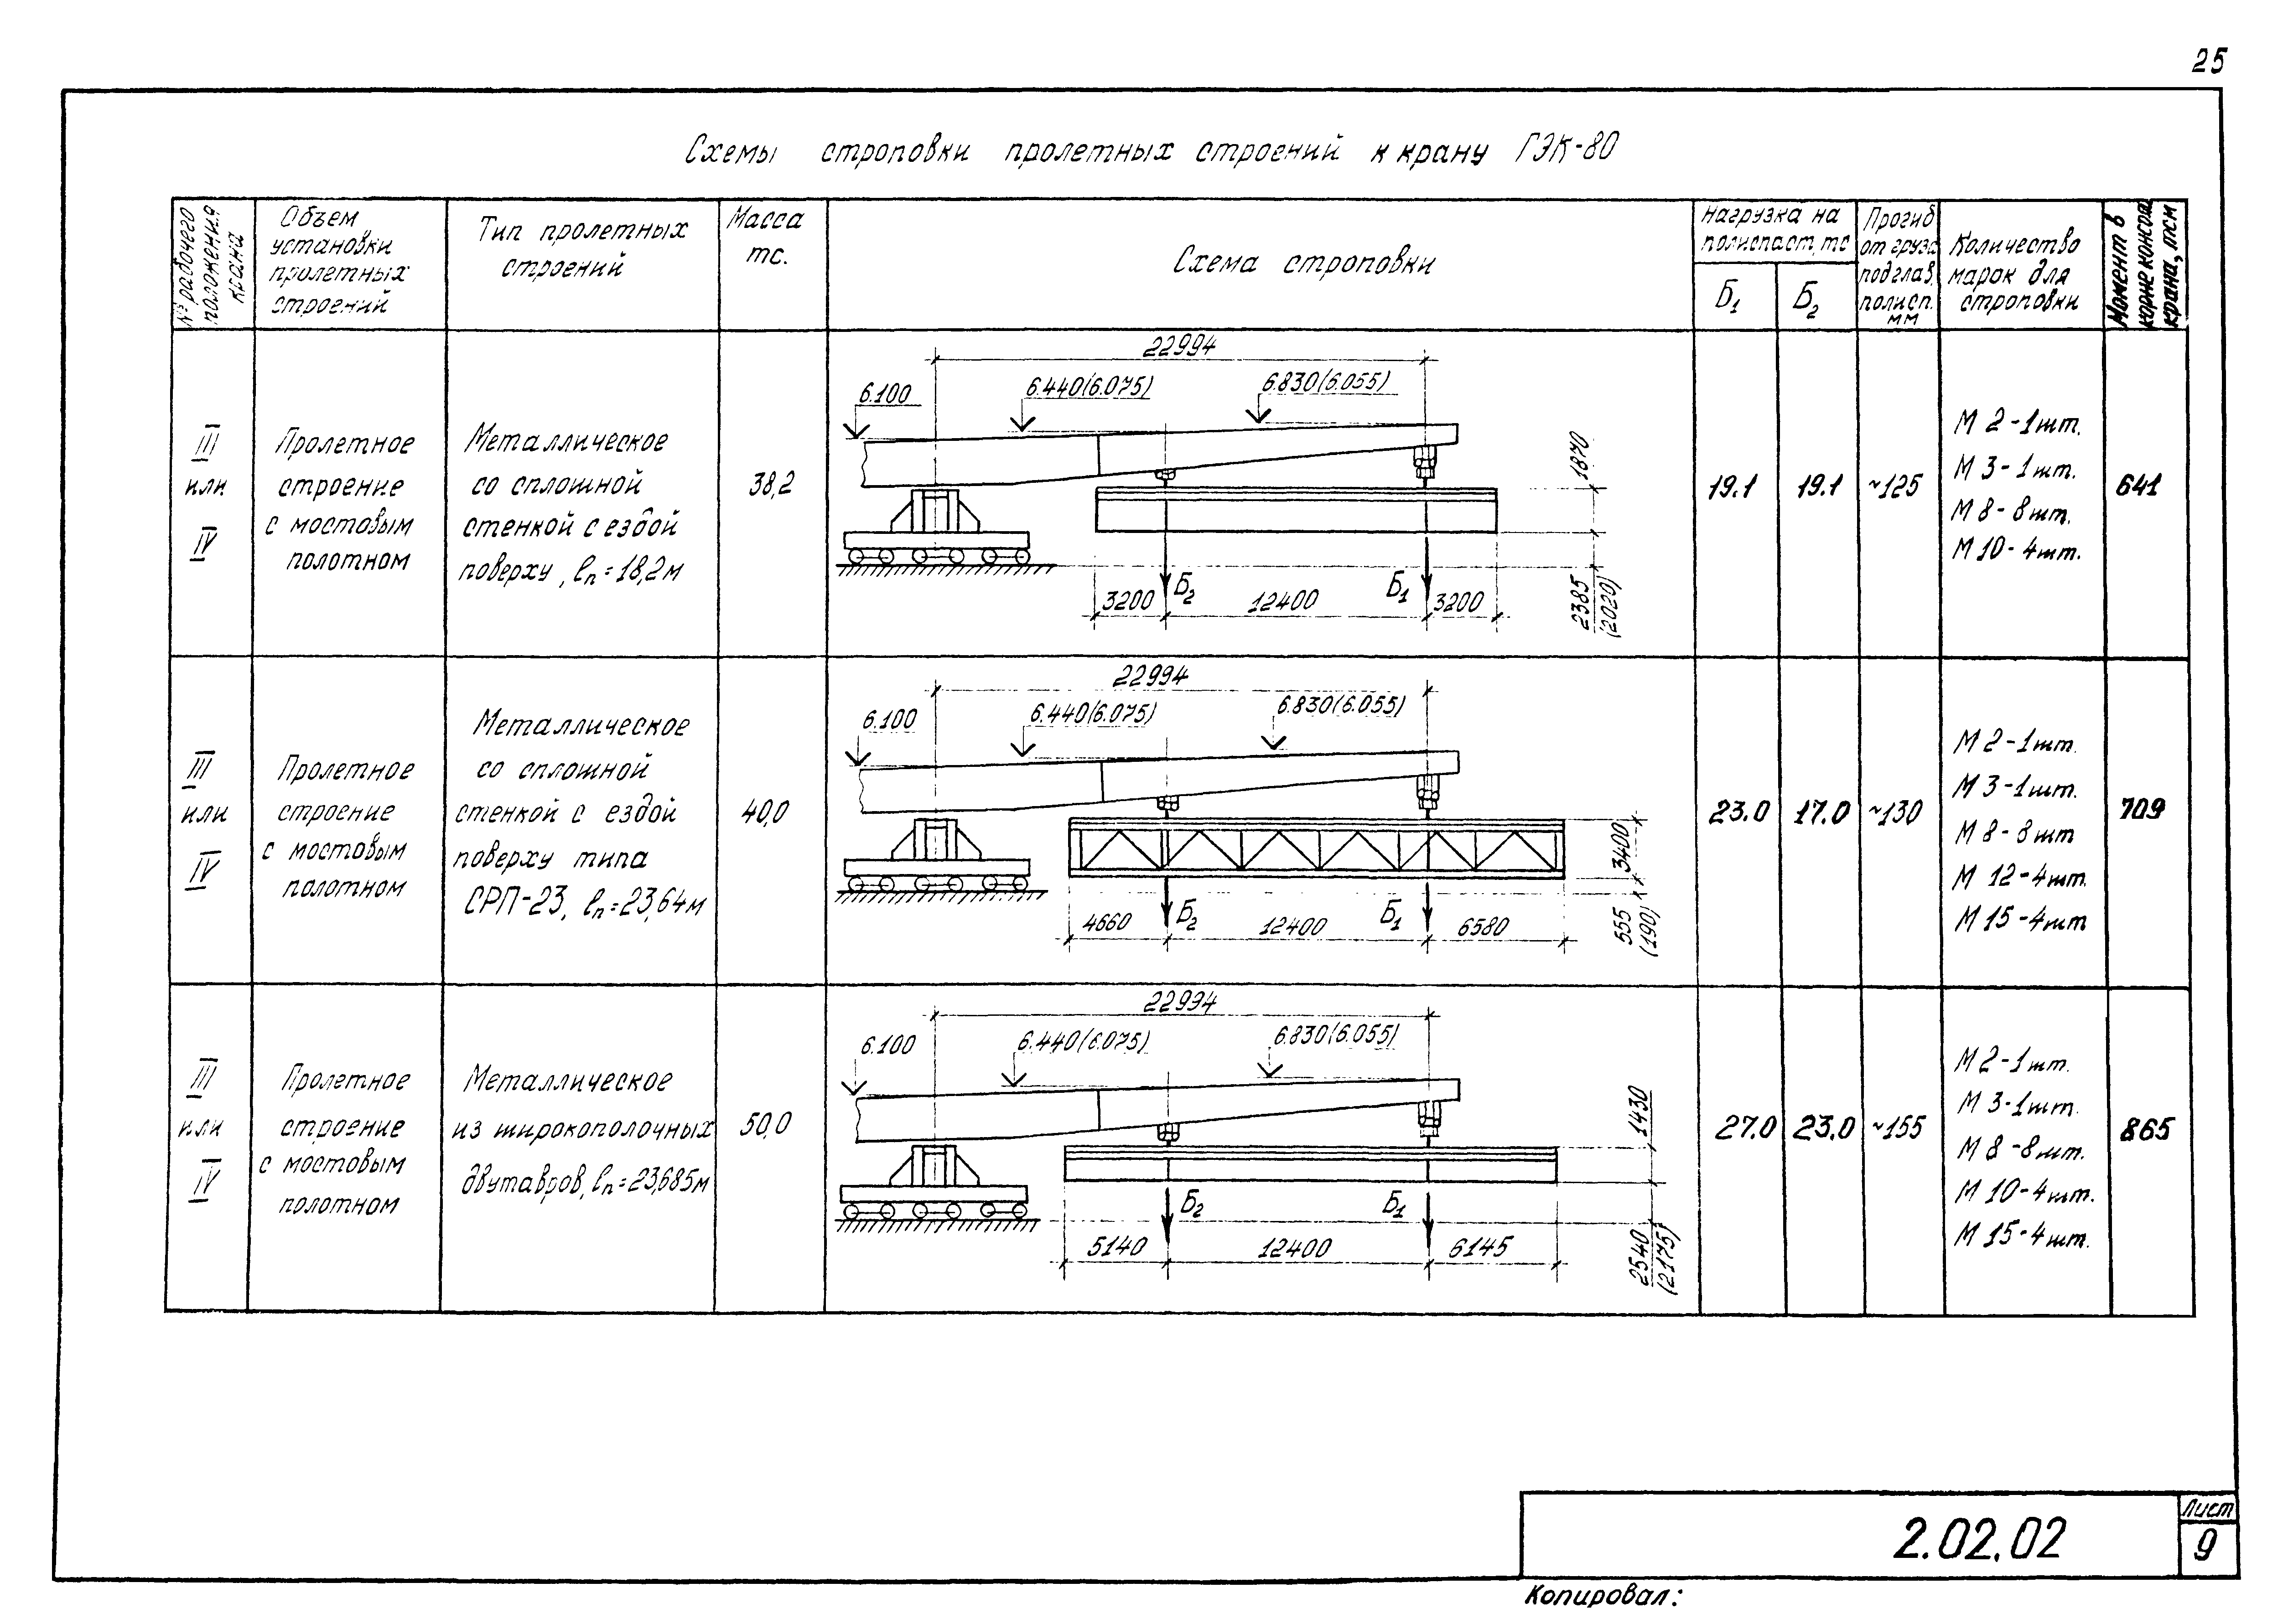 25
Схемы строповки пролетных строений к крану ГЭК-80
№ рабочего положения крана
Объем установки пролетных строений
Тип пролетных строений
Масса тс.
Схема строповки
Нагрузка на полиспаст, тс
Б1
Б2
Прогиб от груза под глав. полисп. мм
Количество марок для строповки
Момент в корне консоли крана, тсм
III
или
IV
Пролетное
строение
с мостовым
полотном
Металлическое
со сплошной
стенкой с ездой
поверху, ℓп=18,2м
38,2
22994
6.100
6.440(6.075)
6.830(6.055)
1870
2385
(2020)
Б2
Б1
3200
12400
3200
19.1
19.1
~125
М 2-1шт.
М 3-1шт.
М 8-8шт.
М 10-4шт.
641
III
или
IV
Пролетное
строение
с мостовым
полотном
Металлическое
со сплошной
стенкой с ездой
поверху типа
СРП-23, ℓп=23,64м
40,0
22994
6.100
6.440(6.075)
6.830(6.055)
3400
555
(190)
Б2
Б1
4660
12400
6580
23.0
17.0
~130
М 2-1шт.
М 3-1шт.
М 8-8шт
М 12-4шт.
М 15-4шт
709
III
или
IV
Пролетное
строение
с мостовым
полотном
Металлическое
из широкополочных
двутавров, ℓп=23,685м
50,0
22994
6.100
6.440(6.075)
6.830(6.055)
1430
2540
(2175)
Б2
Б1
5140
12400
6145
27.0
23.0
~155
М 2-1шт.
М 3-1шт.
М 8-8шт.
М 10-4шт.
М 15-4шт.
865
2.02.02
Лист
9
Копировал: